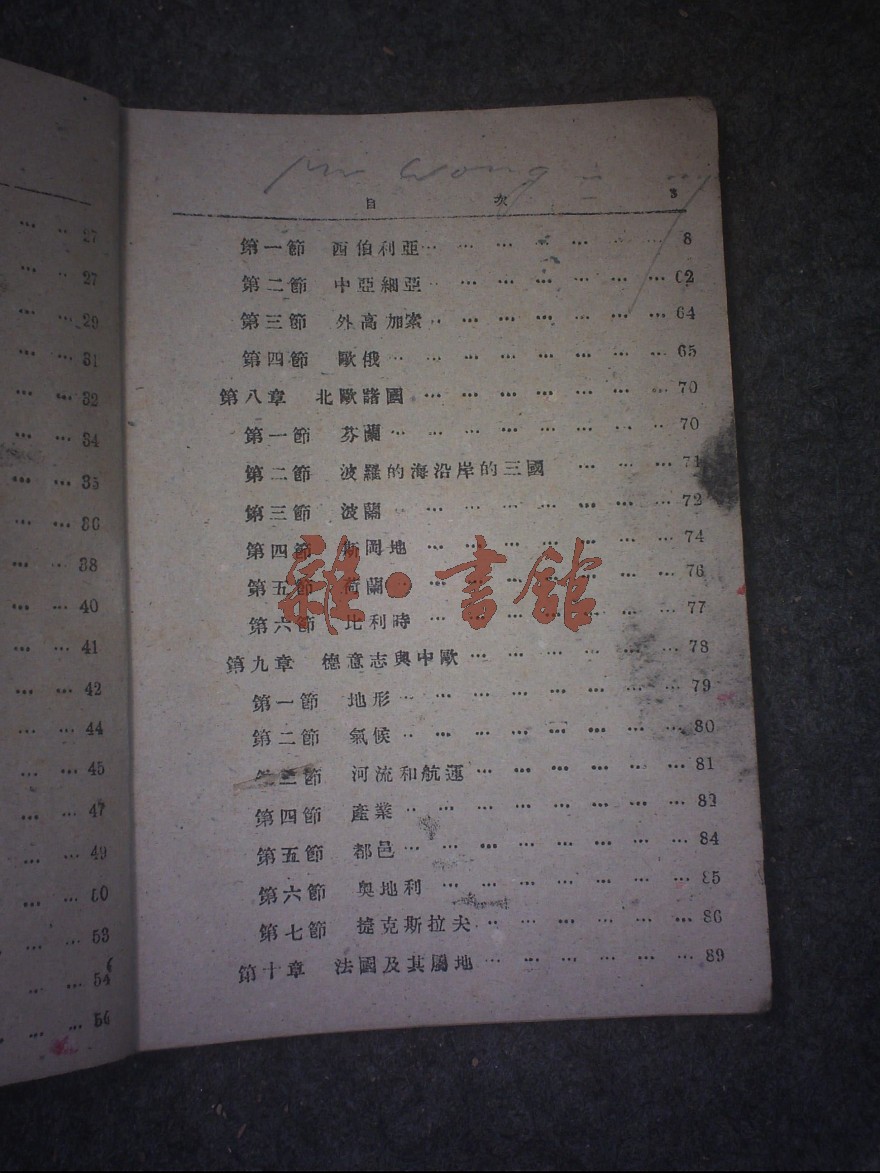 27
27
29
31
32
34
35
36
38
40
41
42
44
45
47
49
50
53
54
56
目 次 3
第一節 西伯利亞 … … … … … … 8
第二節 中亞細亞 … … … … … … 62
第三節 外高加索 … … … … … … 64
第四節 歐俄 … … … … … … … 65
第八章 北歐諸國 … … … … … … 70
第一節 芬蘭 … … … … … … … 70
第二節 波羅的海沿岸的三國 … … … 71
第三節 波蘭 … … … … … … … 72
第四節 斯岡地 … … … … … … … 74
第五節 荷蘭 … … … … … … … 76
第六節 比利時 … … … … … … … 77
第九章 德意志與中歐 … … … … … … 78
第一節 地形 … … … … … … … 79
第二節 氣候 … … … … … … … 80
第三節 河流和航運 … … … … … … 81
第四節 產業 … … … … … … … 82
第五節 都邑 … … … … … … … 84
第六節 奧地利 … … … … … … … 85
第七節 捷克斯拉夫 … … … … … … 86
第十章 法國及其屬地 … … … … … … 89
雜·書館